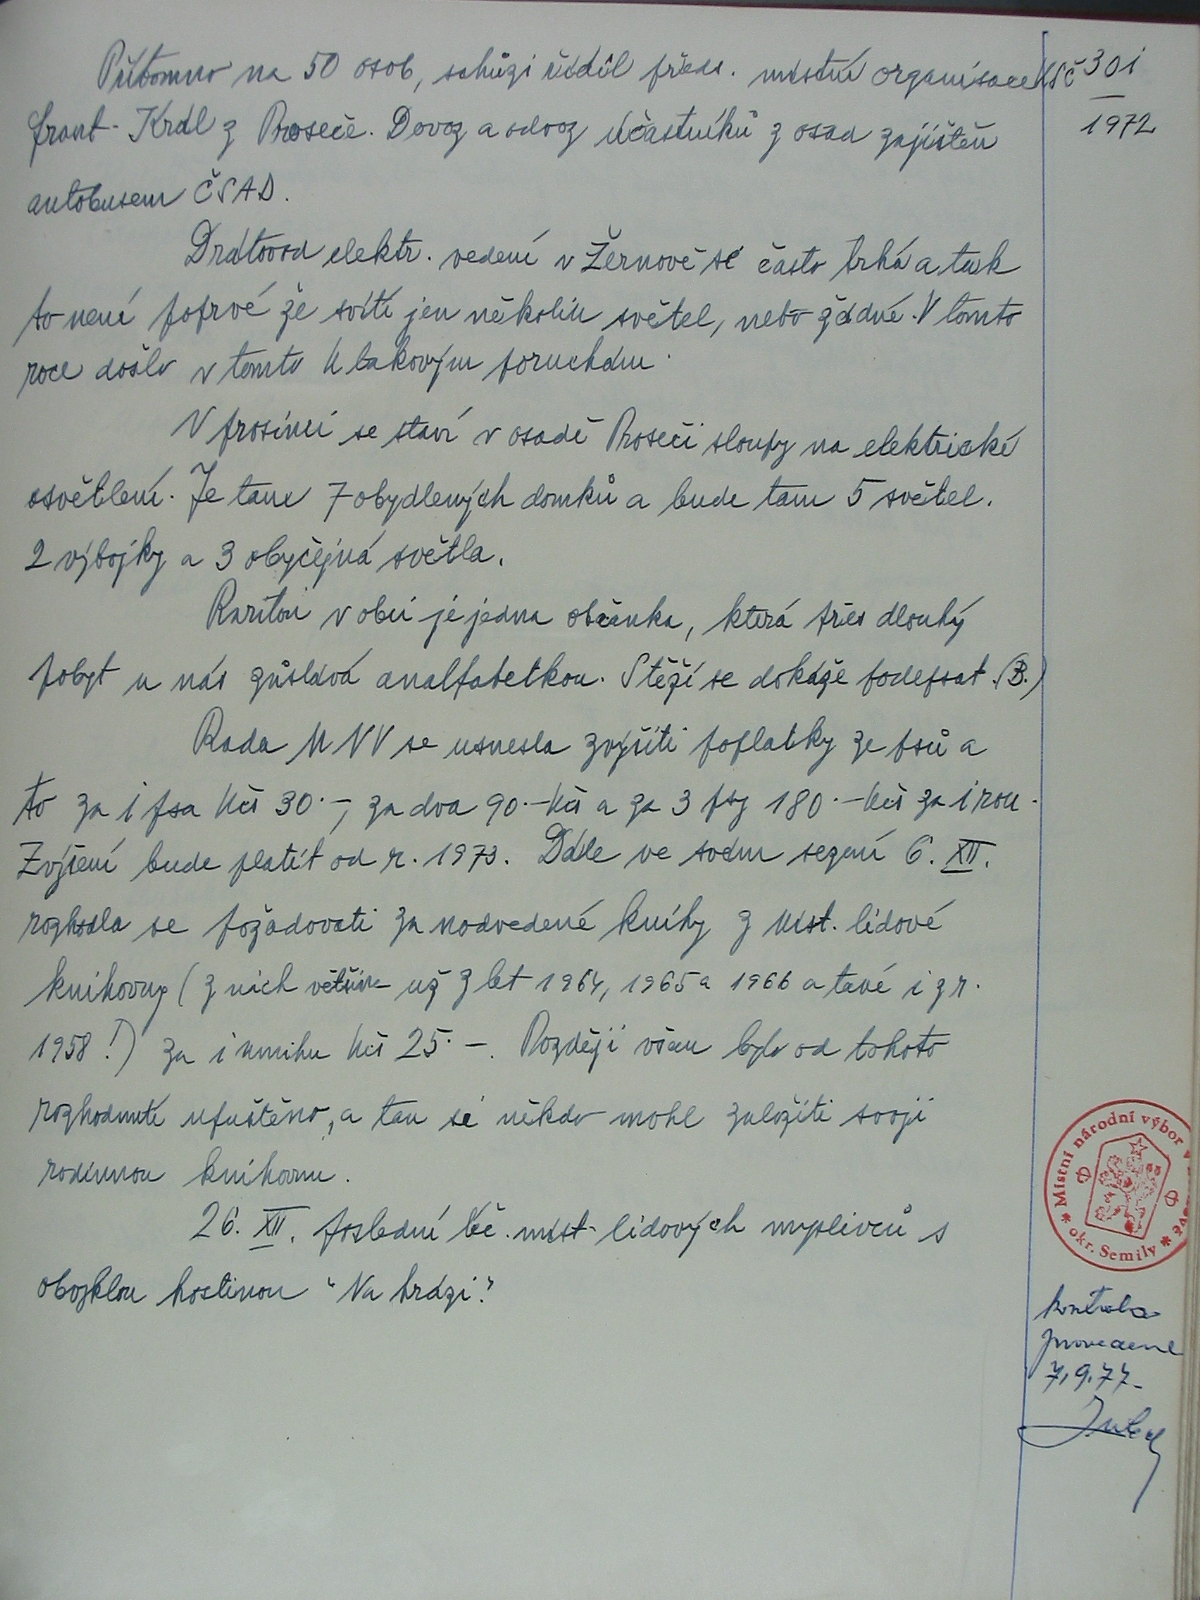 Přítomno na 50 osob, schůzi řídil předs. místní organisace KSČ
frant. Král z Proseče. Dovoz a odvoz účastníků z osad zajištěn
autobusem ČSAD.
Drátovod elektr. vedení v Žernově se často trhá a tak
to není poprvé že svítí jen několik světel, nebo žádné. V tomto
roce došlo v tomto k takovým poruchám.
V prosinci se staví v osadě Proseči sloupy na elektrické
osvětlení. Je tam 7 obydlených domků a bude tam 5 světel.
2 výbojky a 3 obyčejná světla.
Raritou v obci je jedna občanka, která přes dlouhý
pobyt u nás zůstává analfabetkou. Stěží se dokáže podepsat. (B.)
Rada MNV se usnesla zvýšiti poplatky ze psů a
to za 1 psa Kčs 30.-, za dva 90.- Kčs a za 3 psy 180.- Kčs za 1 rok.
Zvýšení bude platit od r. 1973. Dále ve svém sezení 6. XII.
rozhodla se požadovati za neodvedené knihy z míst. lidové
knihovny (z nich většina už z let 1964, 1965 a 1966 a také i z r.
1958!) za 1 knihu Kčs 25.-. Později však bylo od tohoto
rozhodnutí upuštěno, a tak si někdo mohl založiti svoji
rodinnou knihovnu.
26. XII. poslední leč míst. lidových myslivců s
obvyklou hostinou "Na hrázi".
301
1972
Místní národní výbor v
* okr. Semily *
kontrola
provedena
7.9.77